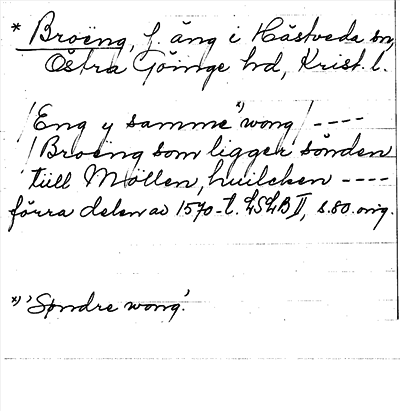 * Broëng, f. äng i Hästveda sn,
Östra Göinge hd, Krist. l.
/Eng y samme *) wong/ ----
/Broeng som ligger sönden
tiill Møllen, huilcken ----
förra delen av 1570-t. LSLB II, s. 80. orig.
*) 'Søndre wong'.